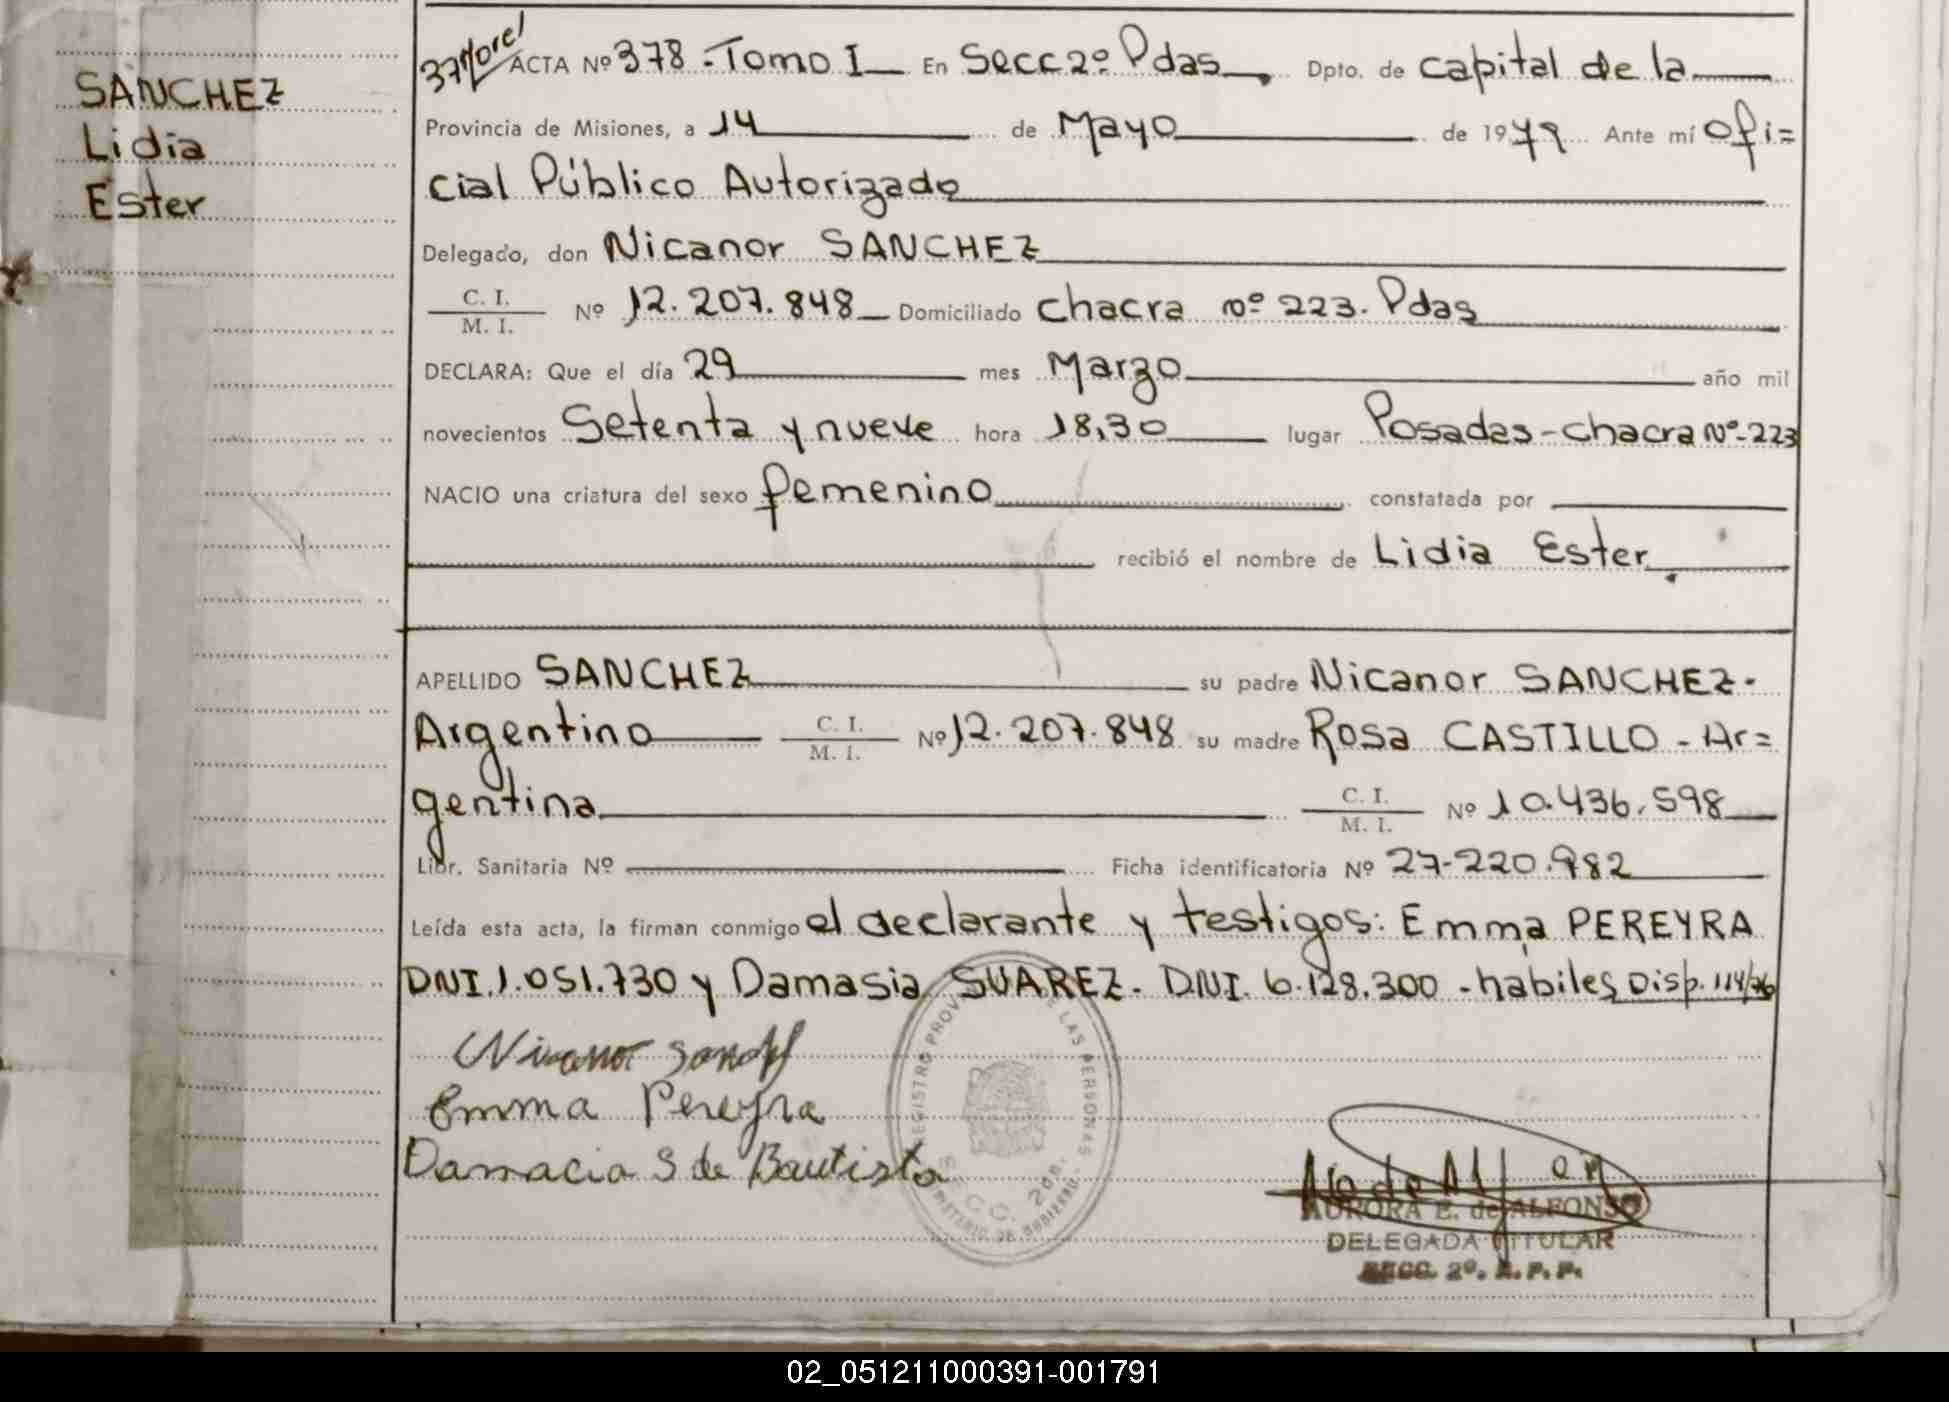 SANCHEZ
Lidia
Ester
ACTA Nº 378 - Tomo I En Secc 2º Pdas Dpto. de capital de la
Provincia de Misiones, a 14 de Mayo de 1979 Ante mí ofi=
cial Público Autorizado
Delegado, don Nicanor SANCHEZ
C. I.
M. I. Nº 12.207.848 Domiciliado chacra nº 223. Pdas
DECLARA: Que el día 29 mes Marzo año mil
novecientos Setenta y nueve hora 18,30 lugar Posadas - chacra Nº-223
NACIO una criatura del sexo femenino constatada por
recibió el nombre de Lidia Ester
APELLIDO SANCHEZ su padre Nicanor SANCHEZ.
Argentino C. I. M. I. Nº 12.207.848 su madre Rosa CASTILLO - Ar=
gentina C. I. M. I. Nº 10.436.598
Libr. Sanitaria Nº Ficha identificatoria Nº 27-220.982
Leída esta acta, la firman conmigo el declarante y testigos: Emma PEREYRA
DNI. 1.051.730 y Damasia SUAREZ. DNI. 6.128.300 - habiles Disp. 114/76
Nicanor
Emma Pereyra
Damacia S de Bautista
REGISTRO PROV LAS PERSONAS
SECC. 2da.
MINISTERIO DE GOBIERNO
AURORA E. de ALFONSO
DELEGADA TITULAR
SECC. 2º. R. P. P.
02_051211000391-001791